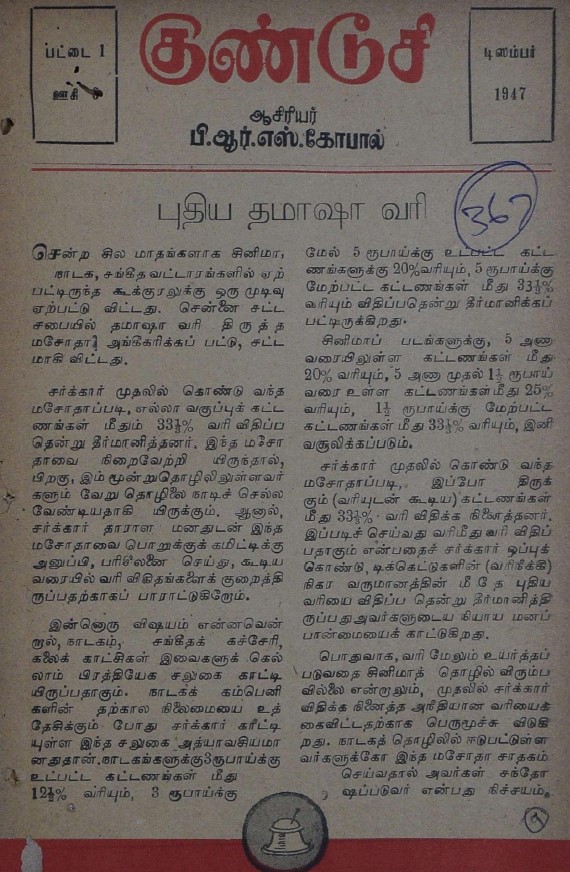 பட்டை 1
ஊசி
குண்டூசி
டிஸம்பர்
1947
ஆசிரியர்
பி.ஆர்.எஸ்.கோபால்
புதிய தமாஷா வரி
367
சென்ற சில மாதங்களாக சினிமா,
நாடக, சங்கீத வட்டாரங்களில் ஏற்
பட்டிருந்த கூக்குரலுக்கு ஒரு முடிவு
ஏற்பட்டு விட்டது. சென்னை சட்ட
சபையில் தமாஷா வரி திருத்த
மசோதா அங்கீகரிக்கப் பட்டு, சட்ட
மாகி விட்டது.
சர்க்கார் முதலில் கொண்டு வந்த
மசோதாப்படி, எல்லா வகுப்புக் கட்ட
ணங்கள் மீதும் 33⅓% வரி விதிப்ப
தென்று தீர்மானித்தனர். இந்த மசோ
தாவை நிறைவேற்றி யிருந்தால்,
பிறகு, இம் மூன்று தொழிலிலுள்ளவர்
களும் வேறு தொழிலை நாடிச் செல்ல
வேண்டியதாகி யிருக்கும். ஆனால்,
சர்க்கார் தாராள மனதுடன் இந்த
மசோதாவை பொறுக்குக் கமிட்டிக்கு
அனுப்பி, பரிசீலனை செய்து, கூடிய
வரையில் வரி விகிதங்களைக் குறைத்தி
ருப்பதற்காகப் பாராட்டுகிறோம்.
இன்னொரு விஷயம் என்னவென்
றால், நாடகம், சங்கீதக் கச்சேரி,
கலைக் காட்சிகள் இவைகளுக் கெல்
லாம் பிரத்தியேக சலுகை காட்டி
யிருப்பதாகும். நாடகக் கம்பெனி
களின் தற்கால நிலைமையை உத்
தேசிக்கும் போது சர்க்கார் காட்டி
யுள்ள இந்த சலுகை அத்யாவசியமா
னதுதான். நாடகங்களுக்கு 3 ரூபாய்க்கு
உட்பட்ட கட்டணங்கள் மீது
12½% வரியும், 3 ரூபாய்க்கு
மேல் 5 ரூபாய்க்கு உட்பட்ட கட்ட
ணங்களுக்கு 20% வரியும், 5 ரூபாய்க்கு
மேற்பட்ட கட்டணங்கள் மீது 33⅓%
வரியும் விதிப்பதென்று தீர்மானிக்கப்
பட்டிருக்கிறது.
சினிமாப் படங்களுக்கு, 5 அணா
வரையிலுள்ள கட்டணங்கள் மீது
20% வரியும், 5 அணா முதல் 1½ ரூபாய்
வரை உள்ள கட்டணங்கள் மீது 25%
வரியும், 1½ ரூபாய்க்கு மேற்பட்ட
கட்டணங்கள் மீது 33⅓% வரியும், இனி
வசூலிக்கப்படும்.
சர்க்கார் முதலில் கொண்டு வந்த
மசோதாப்படி, இப்போ திருக்
கும் (வரியுடன் கூடிய) கட்டணங்கள்
மீது 33⅓% வரி விதிக்க நினைத்தனர்.
இப்படிச் செய்வது வரிமீது வரி விதிப்
பதாகும் என்பதைச் சர்க்கார் ஒப்புக்
கொண்டு, டிக்கெட்டுகளின் (வரிநீக்கி)
நிகர வருமானத்தின் மீதே புதிய
வரியை விதிப்ப தென்று தீர்மானித்தி
ருப்பது அவர்களுடைய நியாய மனப்
பான்மையைக் காட்டுகிறது.
பொதுவாக, வரி மேலும் உயர்த்தப்
படுவதை சினிமாத் தொழில் விரும்ப
வில்லை என்றாலும், முதலில் சர்க்கார்
விதிக்க நினைத்த அநியான வரியைக்
கைவிட்டதற்காக பெருமூச்சு விடுகி
றது. நாடகத் தொழிலில் ஈடுபட்டுள்ள
வர்களுக்கோ இந்த மசோதா சாதகம்
செய்வதால் அவர்கள் சந்தோ
ஷப்படுவர் என்பது நிச்சயம்.
9